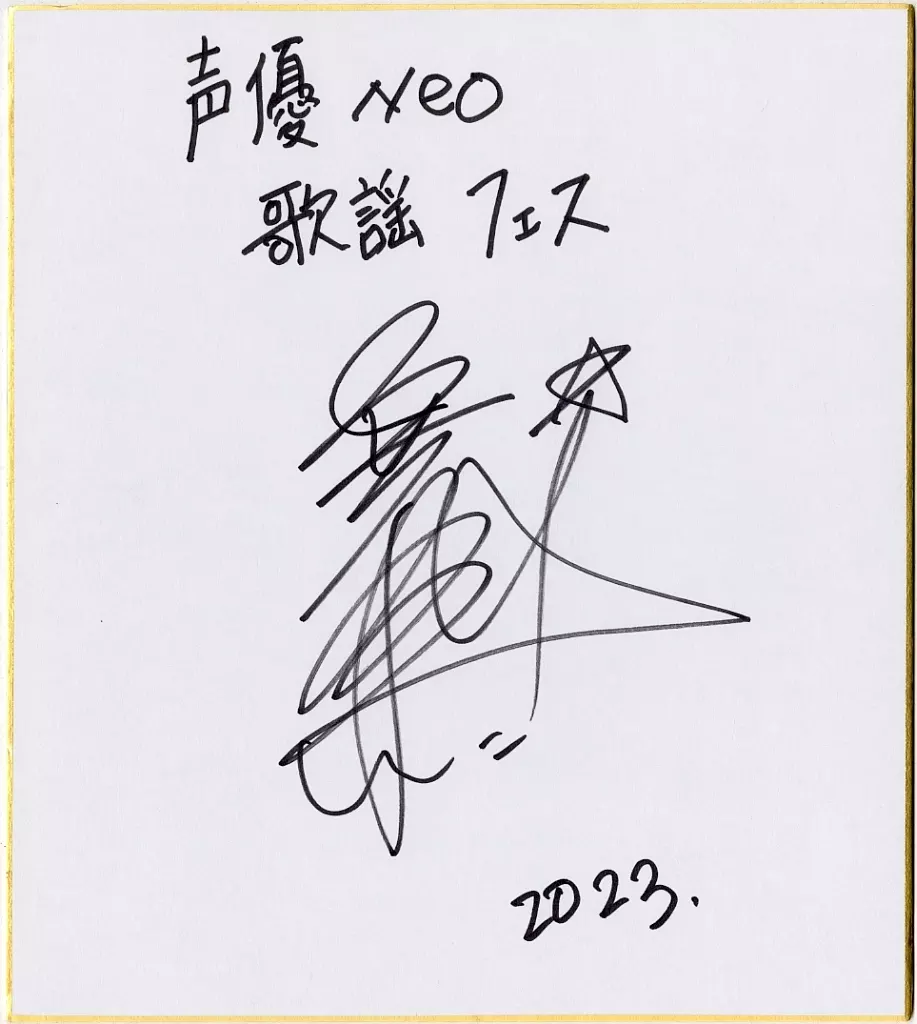 声優 Neo
歌謡フェス
2023.